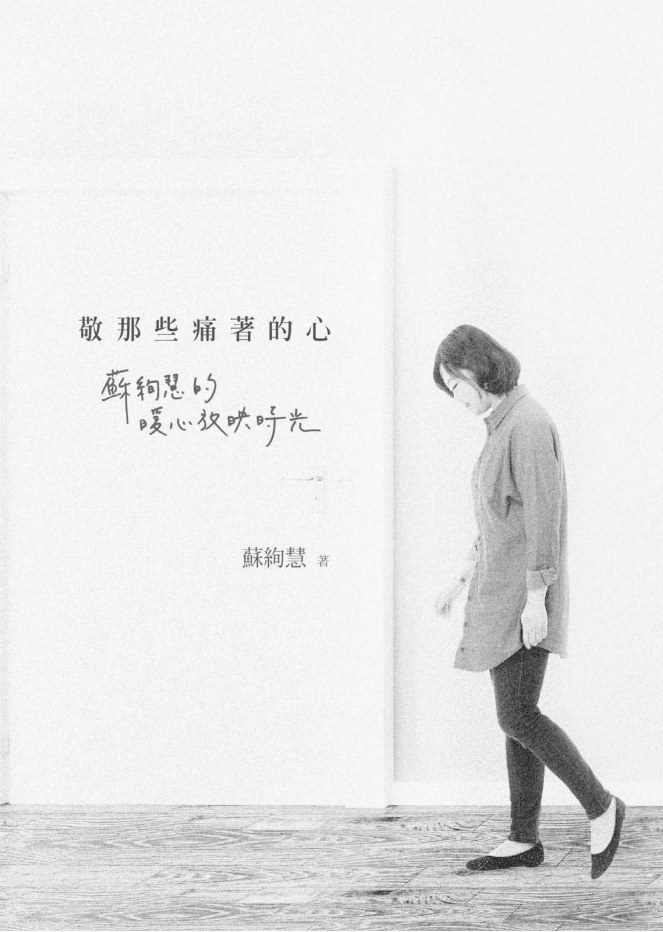 敬那些痛著的心
蘇絢慧的
暖心放映時光
蘇絢慧 著